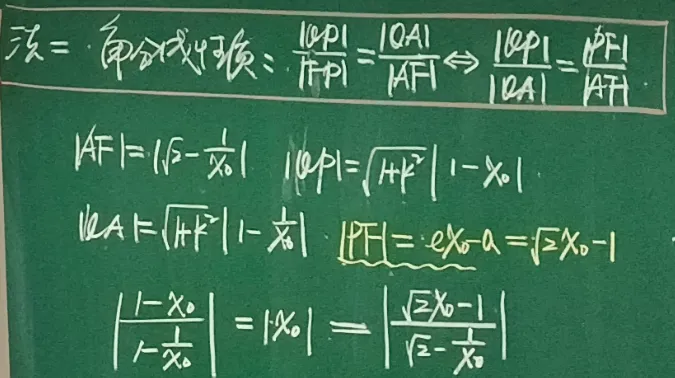 法二:角分线性质:$\frac{|QP|}{|FP|}=\frac{|QA|}{|AF|}\Leftrightarrow\frac{|QP|}{|QA|}=\frac{|PF|}{|AF|}$
$|AF|=|\sqrt{2}-\frac{1}{x_0}|$ $|QP|=\sqrt{1+k^2}|1-x_0|$.
$|QA|=\sqrt{1+k^2}|1-\frac{1}{x_0}|$ $|PF|=ex_0-a=\sqrt{2}x_0-1$
$\left|\frac{1-x_0}{1-\frac{1}{x_0}}\right|=|x_0|=\left|\frac{\sqrt{2}x_0-1}{\sqrt{2}-\frac{1}{x_0}}\right|$